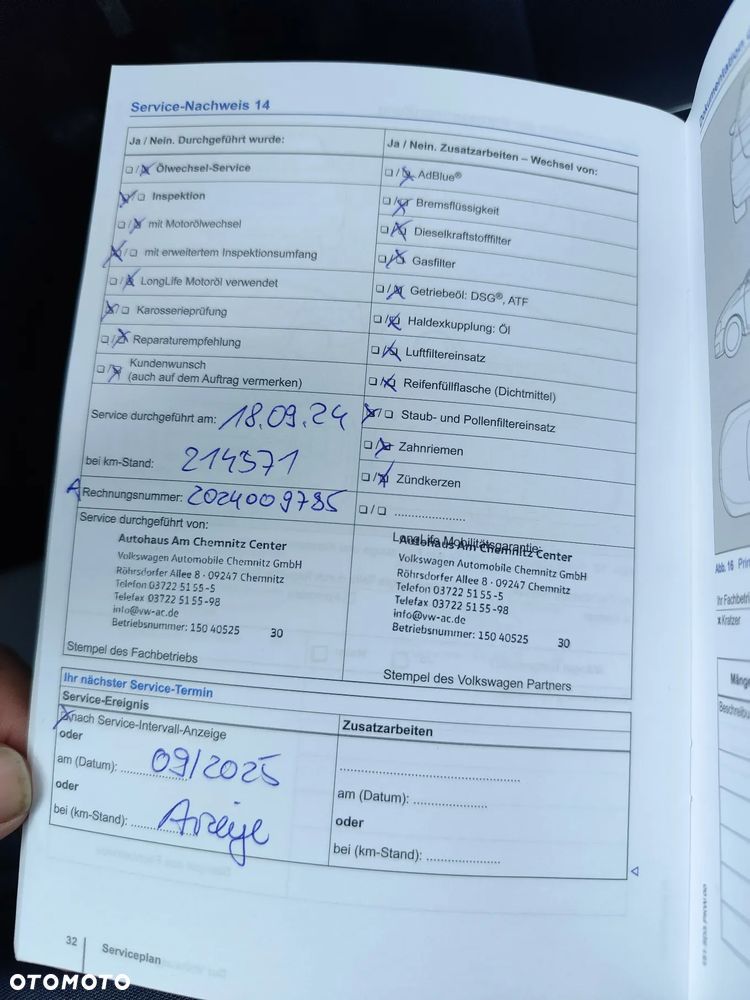 Service-Nachweis 14
Ja / Nein. Durchgeführt wurde:
☐/☒ Ölwechsel-Service
☒/☐ Inspektion
☐/☒ mit Motorölwechsel
☒/☐ mit erweitertem Inspektionsumfang
☐/☒ LongLife Motoröl verwendet
☒/☐ Karosserieprüfung
☐/☒ Reparaturempfehlung
☐/☒ Kundenwunsch
(auch auf dem Auftrag vermerken)
Service durchgeführt am: 18.09.24
bei km-Stand: 214571
A Rechnungsnummer: 2024009785
Ja / Nein. Zusatzarbeiten – Wechsel von:
☐/☒ AdBlue®
☐/☒ Bremsflüssigkeit
☐/☒ Dieselkraftstofffilter
☐/☒ Gasfilter
☐/☒ Getriebeöl: DSG®, ATF
☐/☒ Haldexkupplung: Öl
☐/☒ Luftfiltereinsatz
☐/☒ Reifenfüllflasche (Dichtmittel)
☒/☐ Staub- und Pollenfiltereinsatz
☐/☒ Zahnriemen
☐/☒ Zündkerzen
☐/☐ ....................
Service durchgeführt von:
Autohaus Am Chemnitz Center
Volkswagen Automobile Chemnitz GmbH
Röhrsdorfer Allee 8 · 09247 Chemnitz
Telefon 03722 51 55-5
Telefax 03722 51 55-98
info@vw-ac.de
Betriebsnummer: 150 40525 30
Stempel des Fachbetriebs
LongLife Mobilitätsgarantie:
Autohaus Am Chemnitz Center
Volkswagen Automobile Chemnitz GmbH
Röhrsdorfer Allee 8 · 09247 Chemnitz
Telefon 03722 51 55-5
Telefax 03722 51 55-98
info@vw-ac.de
Betriebsnummer: 150 40525 30
Stempel des Volkswagen Partners
Ihr nächster Service-Termin
Service-Ereignis
☒ nach Service-Intervall-Anzeige
oder
am (Datum): 09/2025
oder
bei (km-Stand): Anzeige
Zusatzarbeiten
....................
am (Datum): ....................
oder
bei (km-Stand): ....................
32
Serviceplan
Abb. 16
Ihr Fachbetri
x Kratzer
Mänge
Beschreibu
OTOMOTO